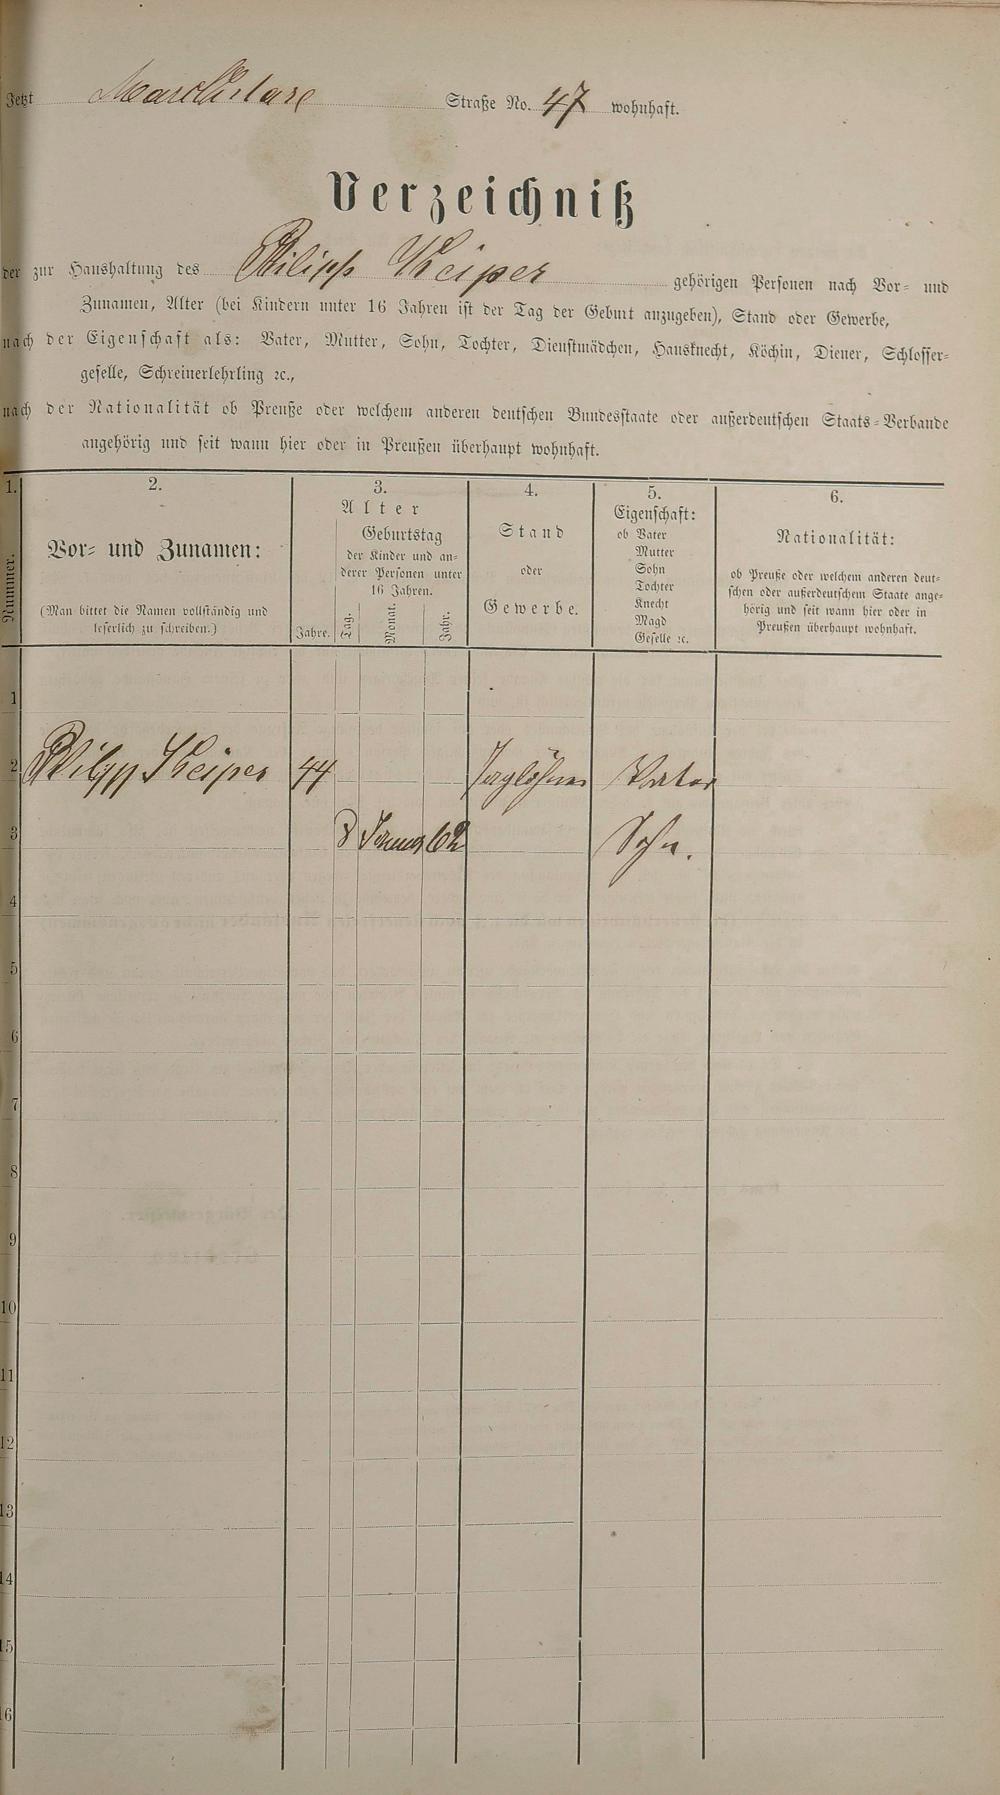 Jetzt Straße No. 47 wohnhaft.
Verzeichniß
der zur Haushaltung des Philipp Keiper gehörigen Personen nach Vor- und
Zunamen, Alter (bei Kindern unter 16 Jahren ist der Tag der Geburt anzugeben), Stand oder Gewerbe,
nach der Eigenschaft als: Vater, Mutter, Sohn, Tochter, Dienstmädchen, Hausknecht, Köchin, Diener, Schlosser-
geselle, Schreinerlehrling ꝛc.,
nach der Nationalität ob Preuße oder welchem anderen deutschen Bundesstaate oder außerdeutschen Staats-Verbande
angehörig und seit wann hier oder in Preußen überhaupt wohnhaft.
1.
Nummer.
2.
Vor- und Zunamen:
(Man bittet die Namen vollständig und
leserlich zu schreiben.)
3.
Alter
Jahre.
Geburtstag
der Kinder und an-
derer Personen unter
16 Jahren.
Tag. Monat. Jahr.
4.
Stand
oder
Gewerbe.
5.
Eigenschaft:
ob Vater
Mutter
Sohn
Tochter
Knecht
Magd
Geselle ꝛc.
6.
Nationalität:
ob Preuße oder welchem anderen deut-
schen oder außerdeutschem Staate ange-
hörig und seit wann hier oder in
Preußen überhaupt wohnhaft.
1
2 Philipp Keiper 44 Taglöhner Vater
3 8 Januar 62 Sohn.
4
5
6
7
8
9
10
11
12
13
14
15
16